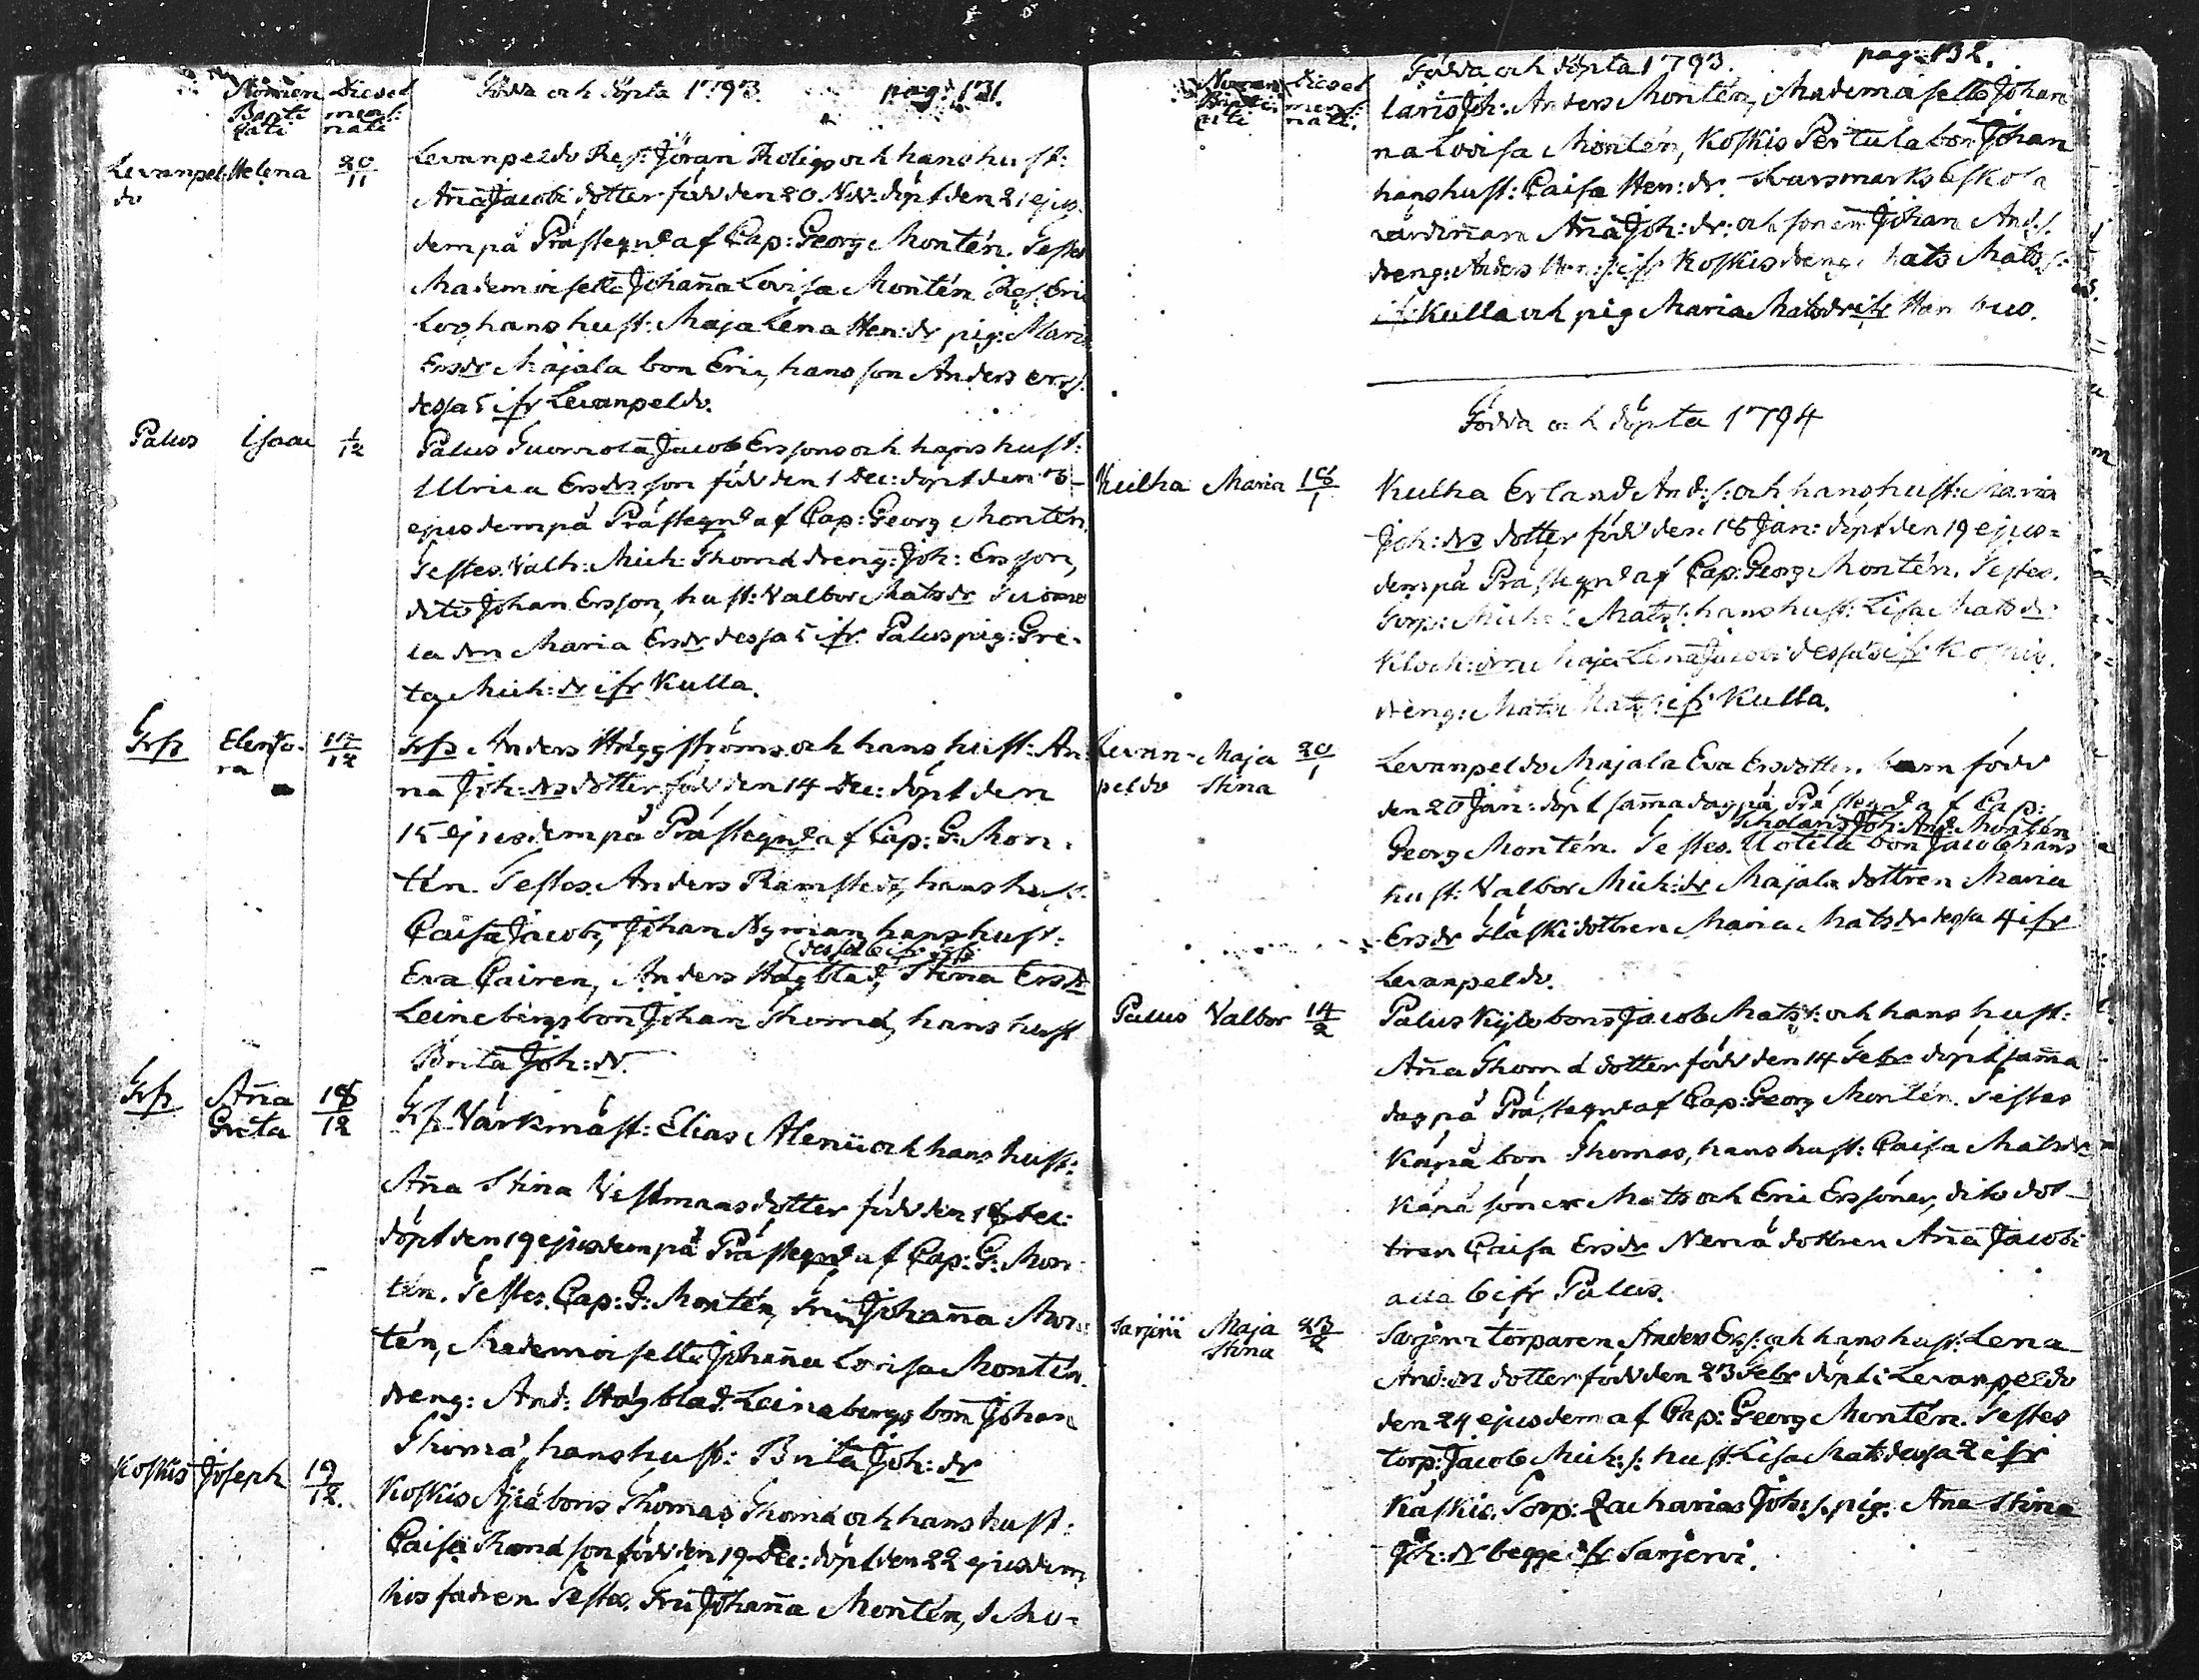 Nomen Baptizati
Dies et mens: nati
Födda och döpta 1793. pag: 131.
Levanpeldo Helena 20/11
Levanpeldo Res: Jöran Roligs och hans hust:
Aña Jacobi dotter född den 20 Nov: döpt den 21 ejus
dem på Prästegrd af Cap: Georg Montén. Testes
Mademoiselle Johaña Lovisa Montén Res: Eric
Loo hans hust: Maja Lena Hen: dr pig: Maria
Ersdr Majala bon Eric, hans son Anders ers s.
dessa 5 ifr Levanpeldo.
Palus Isaac 1/12
Palus Tuorrola Jacob Erssons och hans hust:
Ulrica Ersdrs son född den 1 Dec: döpt den
ejusdem på Prästegrd af Cap: Georg Montén.
Testes. Valb: Mich: Thomæ dreng: Joh: Ersson,
dito Johan Ersson, hust: Valbor Matsdr
la drn Maria Ersdr dessa 5 ifr. Palus pig: Gre-
ta Mich: dr ifr Kulla.
Grfs Elenora 14/12
Grfs Anders Häggströms och hans hust: An
na Joh: drs dotter född den 14 Dec: döpt den
15 ejusdem på Prästegrd af Cap: G: Mon-
tén. Testes. Anders Ramstedt, hans hust:
Caisa Jacobi, Johan Nyman hans hust:
dessa 6 ifr grfs
Eva Cairen, Anders Högblad, Stina Ersdr
Leinebergs bon Johan Thomæ, hans hust
Brita Joh: dr.
Grfs Aña Greta 18/12
Grfs Värkmäst: Elias Alenii och hans hust:
Aña Stina Vestmans dotter född den 18 Dec:
döpt den 19 ejusdem på Prästegrd af Cap: G: Mon-
tén. Testes. Cap: G: Montén, Fru Johaña Mon-
tén, Mademoiselle Johaña Lovisa Montén.
dreng: And: Högblad. Leinebergs bon Johan
Thomæ, hans hust: Brita Joh: dr
Koskis Joseph 19/12.
Koskis Äijäbons Thomas Thomæ och hans hust:
Caisa Thomæ son född den 19 Dec: döpt den 22 ejusdem
hos fadren Testes. Fru Johaña Montén, Scho-
Nomen Baptizati
Dies et mens: nati.
Födda och döpta 1793. pag: 132.
laris Joh: Anders Montén, Mademoiselle Johan
na Lovisa Montén, Koskis Pertula bon Johan
hans hust: Caisa Hen: dr. Svarsmarks Eskola
värdiñan Aña Joh: dr: och sonen Johan And: s.
dreng: Anders Hen: s: ifr Koskis dreng: Mats Mats s:
ifr Kulla och pig Maria Matsdr ifr
Födda och döpta 1794
Kulha Maria 18/1
Kulha Erland And: s: och hans hust: Maria
Joh: drs dotter född den 18 Jan: döpt den 19 ejus=
dem på Prästegrd af Cap: Georg Montén. Testes.
Torp: Michel Mats s: hans hust: Lisa Mats dr
Klock: drn Maja Lena Jacobi dessa 3 ifr Koskis.
dreng: Mats Mats s: ifr Kulla.
Levanpeldo Maja Stina 20/1
Levanpeldo Majala Eva Ersdotter. barn född
den 20 Jan: döpt saña dag på Prästegrd af Cap:
Scholaris Joh: And: Montén
Georg Montén. Testes. Uotila bon Jacob hans
hust: Valbor Mich: dr Majala dottren Maria
Ersdr Släski dottren Maria Matsdr dessa 4 ifr
Levanpeldo.
Palus Valbor 14/2
Palus Kylä bons Jacob Mats s: och hans hust:
Aña Thomæ dotter född den 14 Febr döpt saña
dag på Prästegrd af Cap: Georg Montén. Testes
Känä bon Thomas, hans hust: Caisa Matsdr
Känä söner Mats och Eric Erssöner, dito dot-
tren Caisa Ersdr Neriä dottren Aña Jacobi
alla 6 ifr Palus.
Sarjervi Maja Stina 23/2
Sarjervi torparen Anders Ers s: och hans hust: Lena
And: drs dotter född den 23 Febr döpt i Levanpeldo
den 24 ejusdem af Cap: Georg Montén. Testes
torp: Jacob Mich: s: hust: Lisa Mats dr dessa 2 ifr
Käskis. Torp: Zacharias Joh: s. pig: Aña Stina
Joh: dr begge ifr Sarjervi.